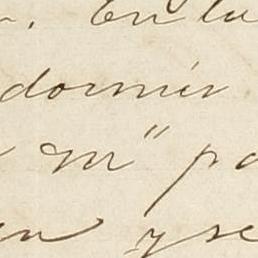 En la
dormir
m" pa
n y se